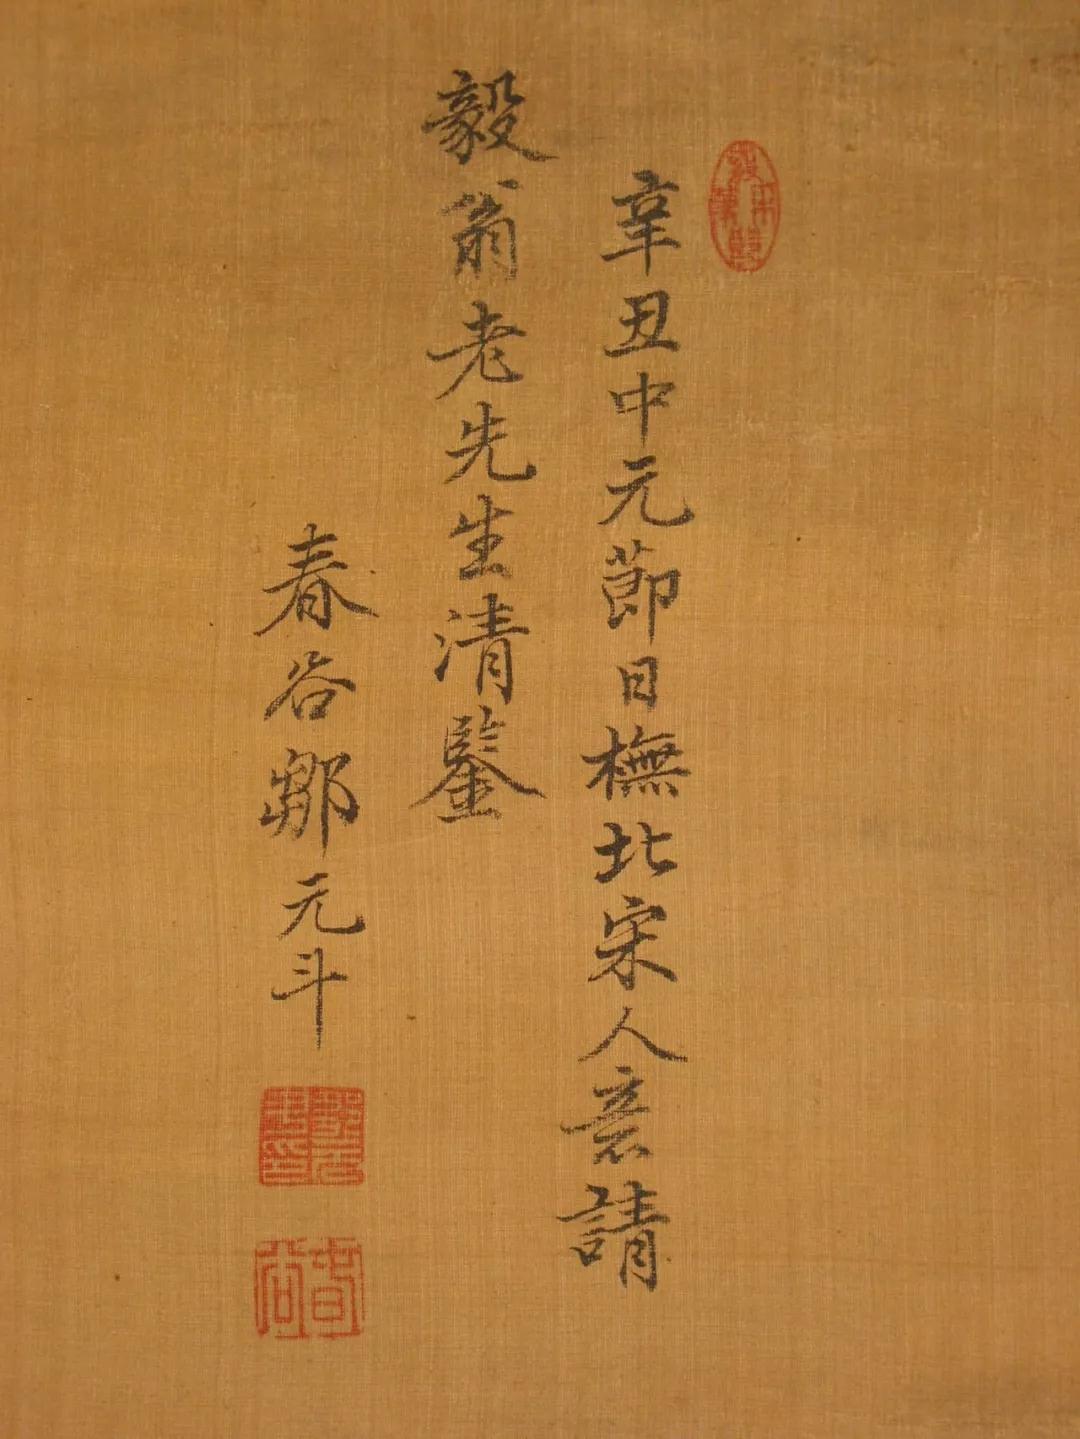 辛丑中元節日橅北宋人意請
毅翁老先生清鑒
春谷鄒元斗
鄒元斗印
春谷